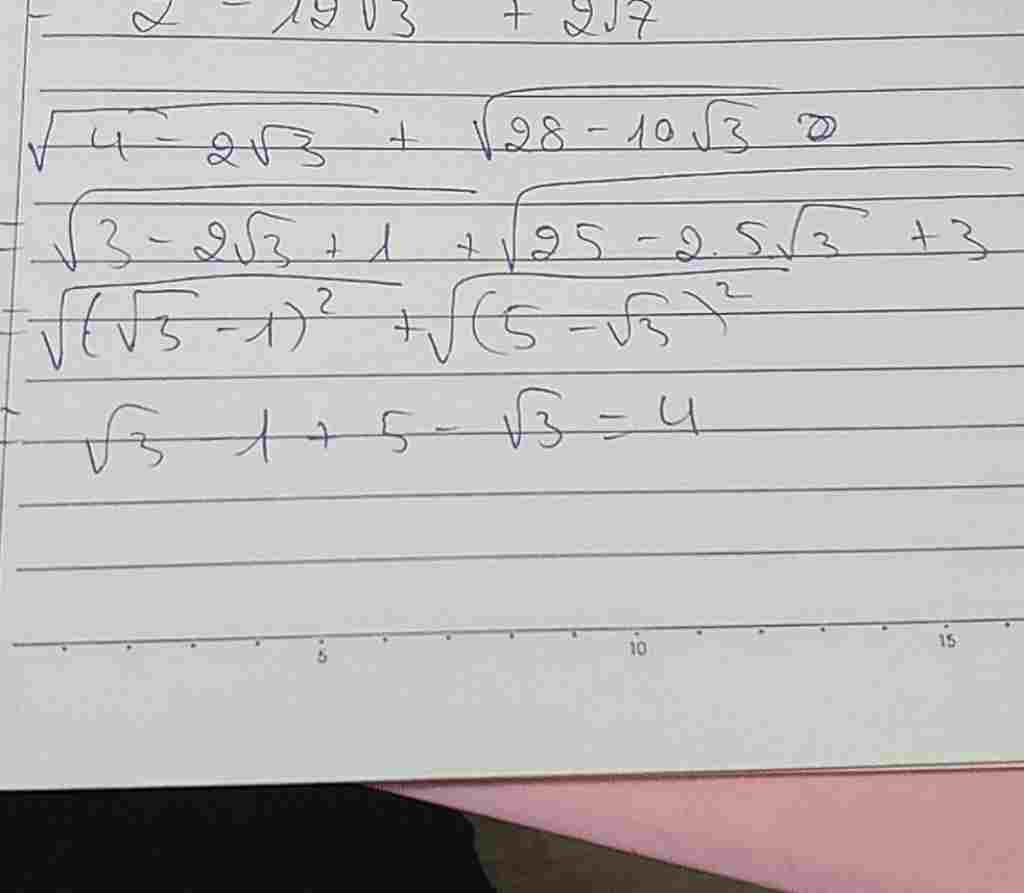 - 2 - 12√3 + 2√7
√(4 - 2√3) + √(28 - 10√3)
= √(3 - 2√3 + 1) + √(25 - 2.5√3 + 3)
= √((√3 - 1)²) + √((5 - √3)²)
= √3 - 1 + 5 - √3 = 4
5 10 15